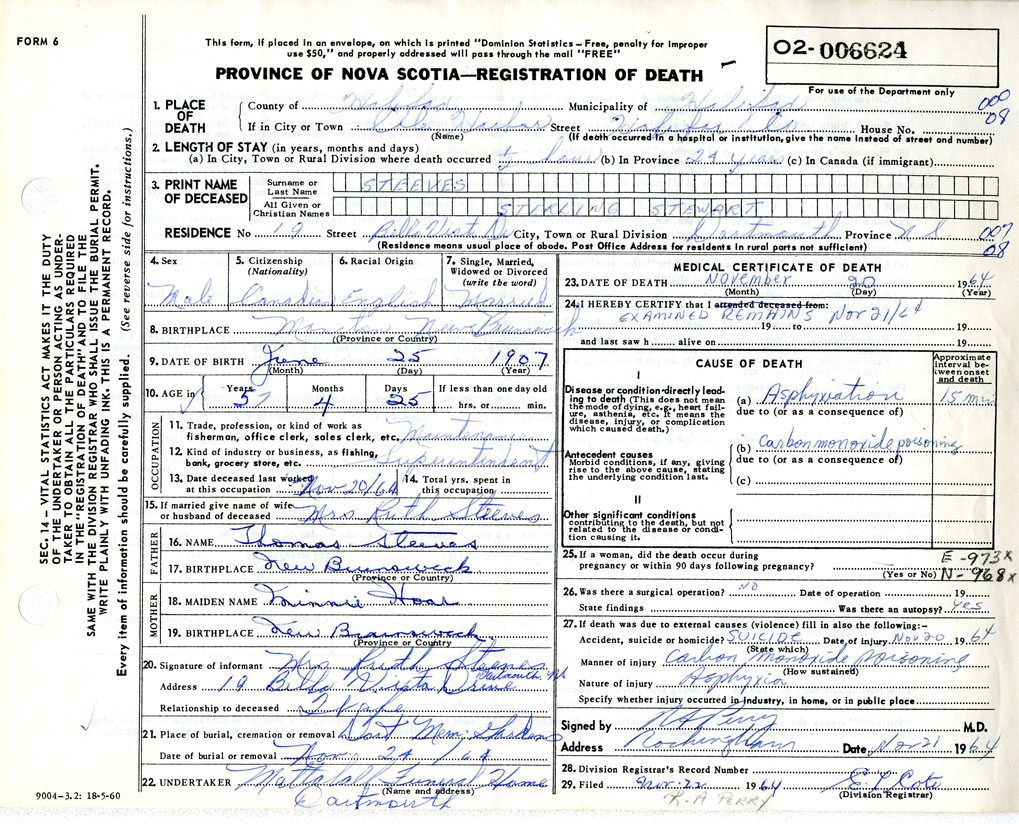 FORM 6
This form, if placed in an envelope, on which is printed "Dominion Statistics – Free, penalty for improper
use $50," and properly addressed will pass through the mail "FREE"
PROVINCE OF NOVA SCOTIA—REGISTRATION OF DEATH
O2-006624
For use of the Department only
000
08
1. PLACE OF DEATH
County of Halifax Municipality of Halifax
If in City or Town Cole Harbor Street Halifax Co House No.
(Name) (If death occurred in a hospital or institution, give the name instead of street and number)
2. LENGTH OF STAY (in years, months and days)
(a) In City, Town or Rural Division where death occurred ½ hour (b) In Province 24 years (c) In Canada (if immigrant)
3. PRINT NAME OF DECEASED
Surname or Last Name STEEVES
All Given or Christian Names STIRLING STEWART
RESIDENCE No 19 Street Bella Vista Dr City, Town or Rural Division Dartmouth Province N S
007
08
(Residence means usual place of abode. Post Office Address for residents in rural parts not sufficient)
4. Sex Male
5. Citizenship (Nationality) Canadian
6. Racial Origin English
7. Single, Married, Widowed or Divorced (write the word) Married
8. BIRTHPLACE Moncton New Brunswick
(Province or Country)
9. DATE OF BIRTH June 25 1907
(Month) (Day) (Year)
10. AGE in
Years 57 Months 4 Days 25 If less than one day old
hrs. or min.
OCCUPATION
11. Trade, profession, or kind of work as
fisherman, office clerk, sales clerk, etc. Maintenance
12. Kind of industry or business, as fishing,
bank, grocery store, etc. Superintendent
13. Date deceased last worked
at this occupation Nov 20/64
14. Total yrs. spent in
this occupation
15. If married give name of wife
or husband of deceased Mrs Ruth Steeves
FATHER
16. NAME Thomas Steeves
17. BIRTHPLACE New Brunswick
(Province or Country)
MOTHER
18. MAIDEN NAME Minnie Hoar
19. BIRTHPLACE New Brunswick
(Province or Country)
20. Signature of informant Mrs Ruth Steeves
Address 19 Bella Vista Drive Dartmouth, NS
Relationship to deceased Wife
21. Place of burial, cremation or removal Dart Mem. Gardens
Date of burial or removal Nov 24 /64
22. UNDERTAKER Mattatall Funeral Home
(Name and address)
Dartmouth
9004-3.2: 18-5-60
MEDICAL CERTIFICATE OF DEATH
23. DATE OF DEATH November 20 1964
(Month) (Day) (Year)
24. I HEREBY CERTIFY that I attended deceased from:
EXAMINED REMAINS Nov 21/64
19 to 19
and last saw h alive on 19
CAUSE OF DEATH
Approximate interval between onset and death
I
Disease or condition directly leading to death (This does not mean the mode of dying, e.g., heart failure, asthenia, etc. It means the disease, injury, or complication which caused death.)
(a) Asphyxiation 15 min
due to (or as a consequence of)
Antecedent causes
Morbid conditions, if any, giving rise to the above cause, stating the underlying condition last.
(b) Carbon monoxide poisoning
due to (or as a consequence of)
(c)
II
Other significant conditions
contributing to the death, but not related to the disease or condition causing it.
25. If a woman, did the death occur during
pregnancy or within 90 days following pregnancy?
(Yes or No)
E -973x
N- 968x
26. Was there a surgical operation? NO Date of operation 19
State findings Was there an autopsy? yes
27. If death was due to external causes (violence) fill in also the following:—
Accident, suicide or homicide? SUICIDE Date of injury Nov 20 1964
(State which)
Manner of injury Carbon monoxide poisoning
(How sustained)
Nature of injury Asphyxia
Specify whether injury occurred in industry, in home, or in public place
Signed by R A Perry M.D.
Address Rockingham Date Nov 21 1964
28. Division Registrar's Record Number
29. Filed Nov-22 1964 E L Cote
(Division Registrar)
R. A PERRY
SEC. 14 — VITAL STATISTICS ACT MAKES IT THE DUTY
OF THE UNDERTAKER OR PERSON ACTING AS UNDER-
TAKER TO OBTAIN ALL THE PARTICULARS REQUIRED
IN THE "REGISTRATION OF DEATH" AND TO FILE THE
SAME WITH THE DIVISION REGISTRAR WHO SHALL ISSUE THE BURIAL PERMIT.
WRITE PLAINLY WITH UNFADING INK. THIS IS A PERMANENT RECORD.
Every item of information should be carefully supplied. (See reverse side for instructions.)